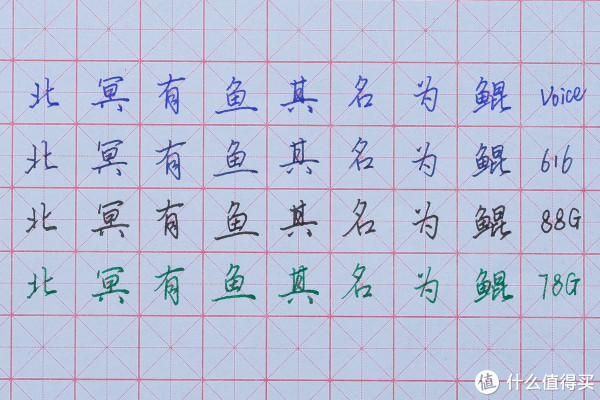 北冥有鱼其名为鲲 Voice
北冥有鱼其名为鲲 616
北冥有鱼其名为鲲 88G
北冥有鱼其名为鲲 78G
值 什么值得买